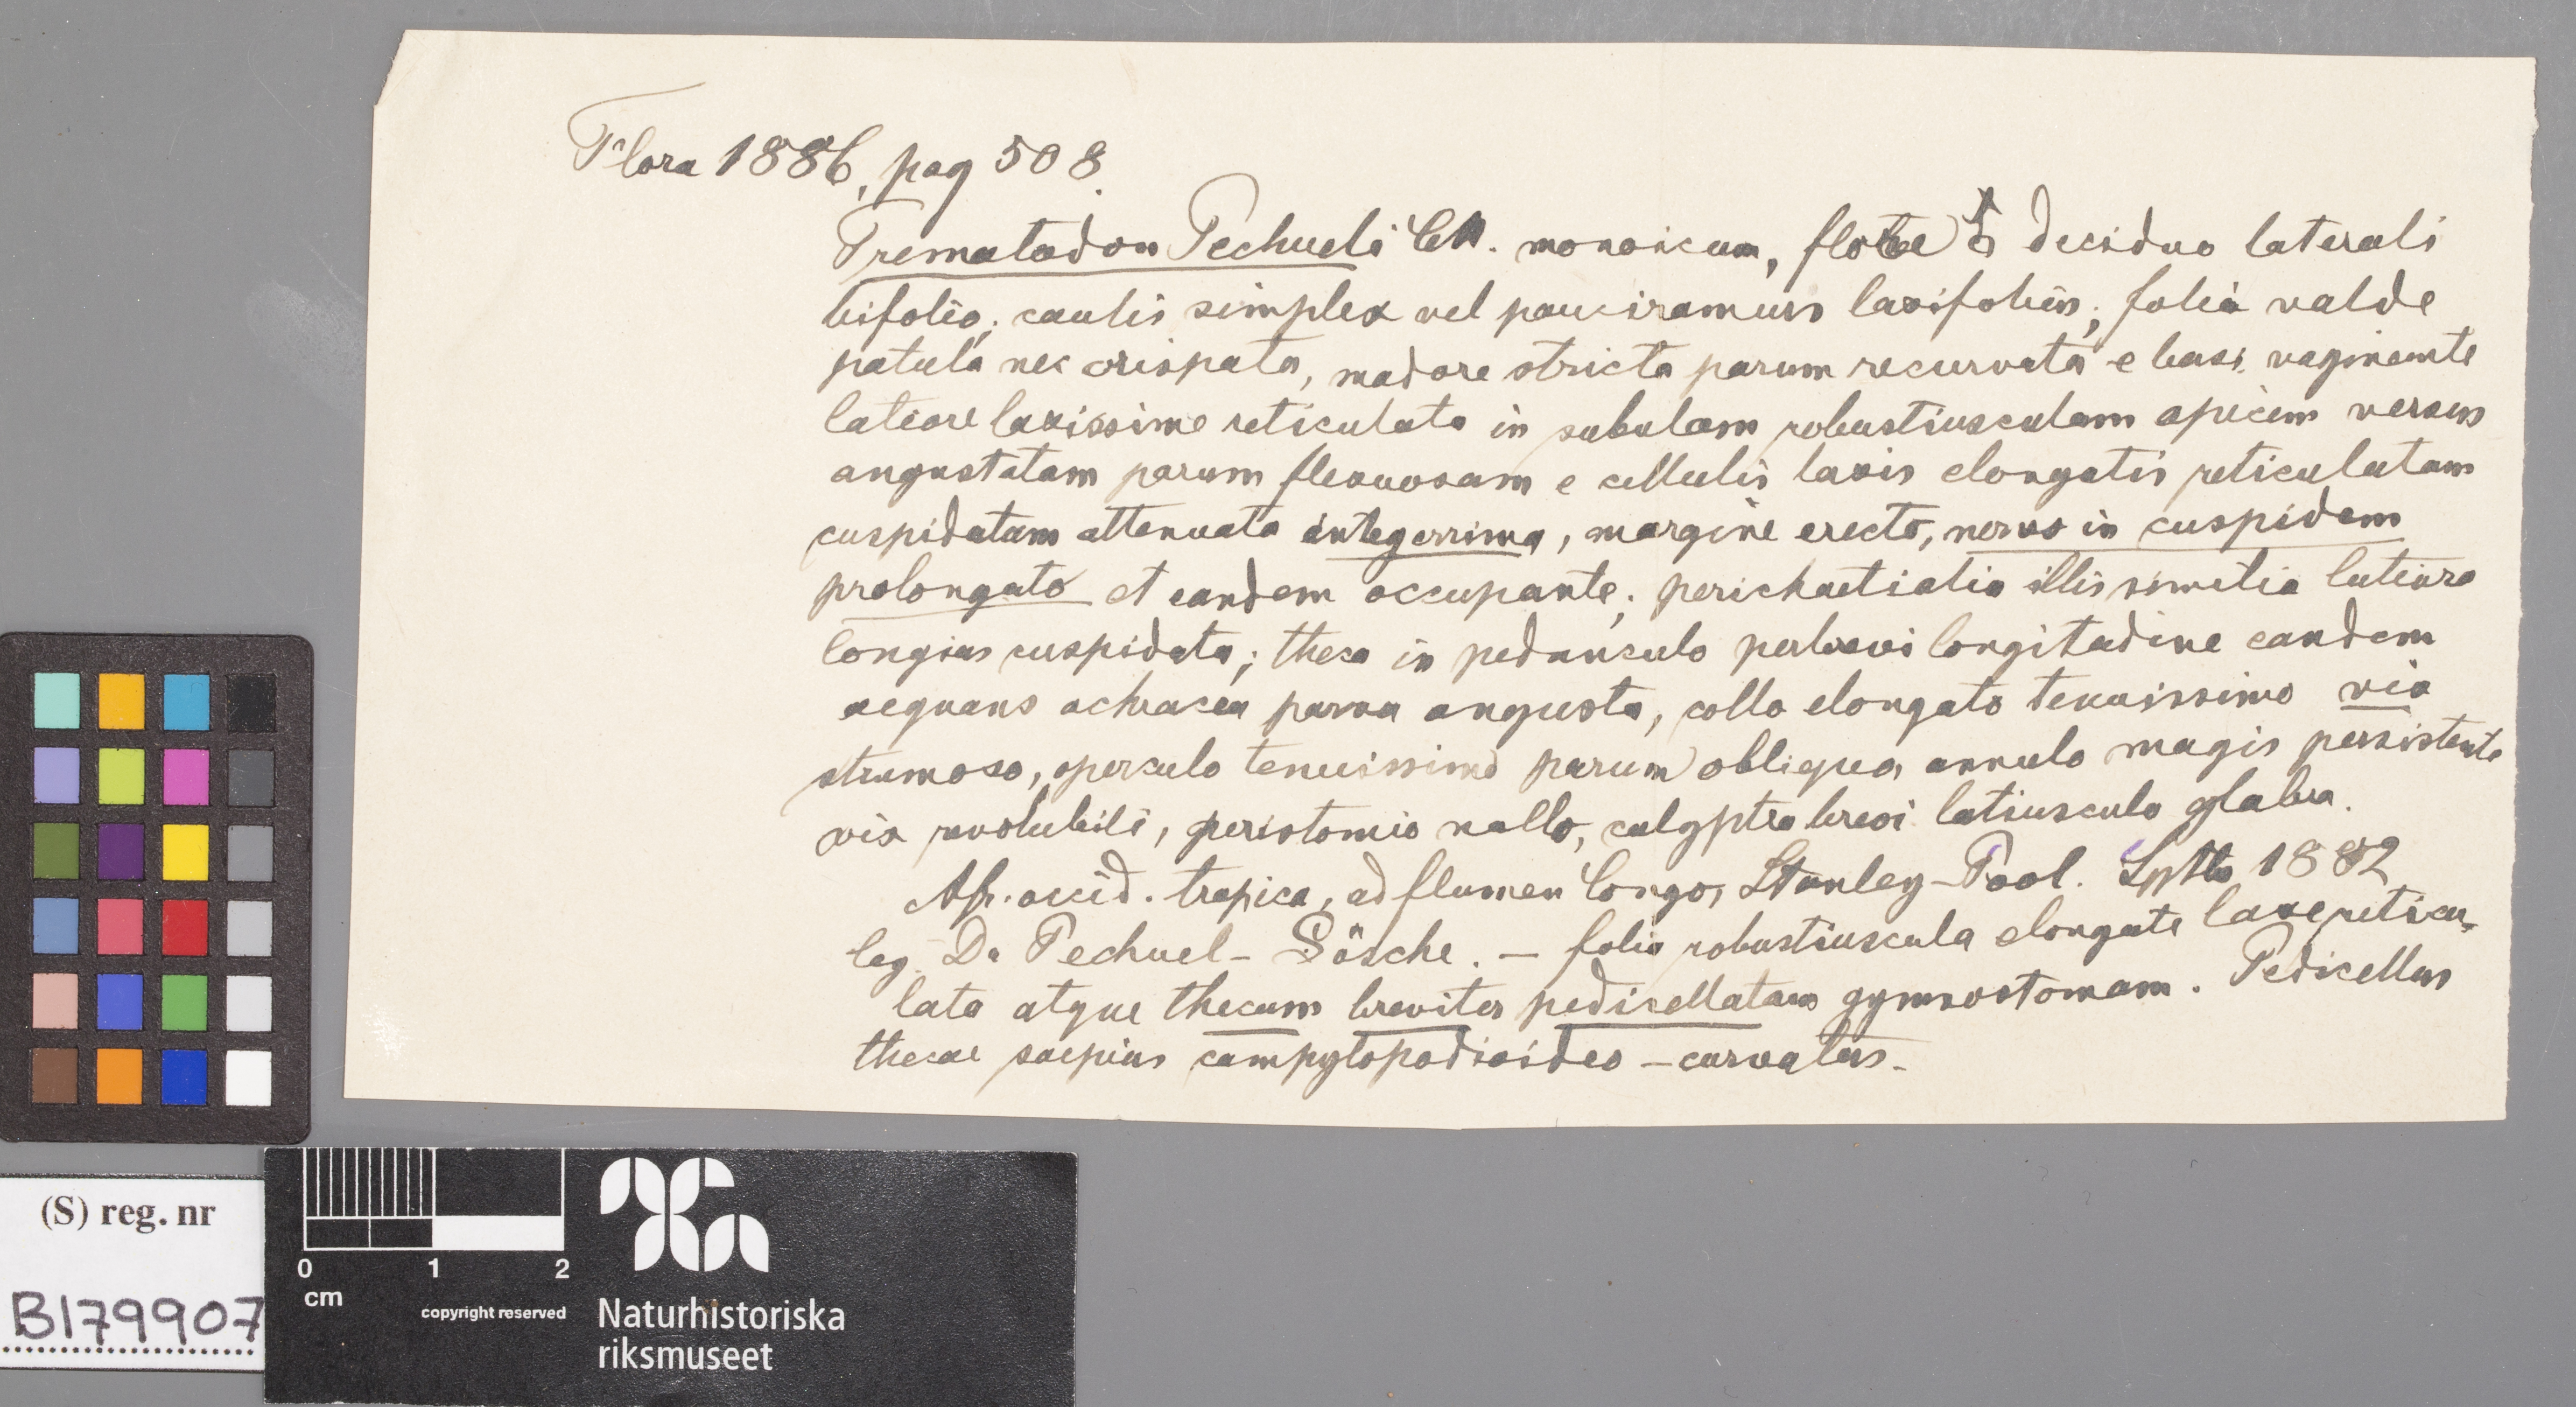 Flora 1886, pag 508.
Trematodon Pechueli CM. monoicum, flore ♂ deciduo laterali
bifolio; caulis simplex vel pauciramurs laxifolius; folia valde
patula nec crispata, madore stricta parum recurvata e basi vaginante
latiore laxissime reticulata in subulam robustiusculam apicem versus
angustatam parum flexuosam e cellulis laxis elongatis reticulatam
cuspidatam attenuata integerrima, margine erecto, nervo in cuspidem
prolongato et eandem occupante; perichaetialia illis similia latiora
longius cuspidata; theca in pedunculo perbrevi longitudine eandem
aequans ochracea parva angusta, collo elongato tenuissimo vix
strumoso, operculo tenuissimo parum obliquo, annulo magis persistente
vix revolubili, peristomio nullo, calyptra brevi latiuscula glabra.
Afr. occid. tropica, ad flumen Congo, Stanley-Pool. Sptb 1882
leg. Dr Pechuel-Lösche. — folia robustiuscula elongate laxe reticu-
lata atque thecam breviter pedicellatam gymnostomam. Pedicellus
thecae saepius campylopodioideo-curvatus.
(S) reg. nr
B179907
0 1 2
cm
copyright reserved
Naturhistoriska
riksmuseet